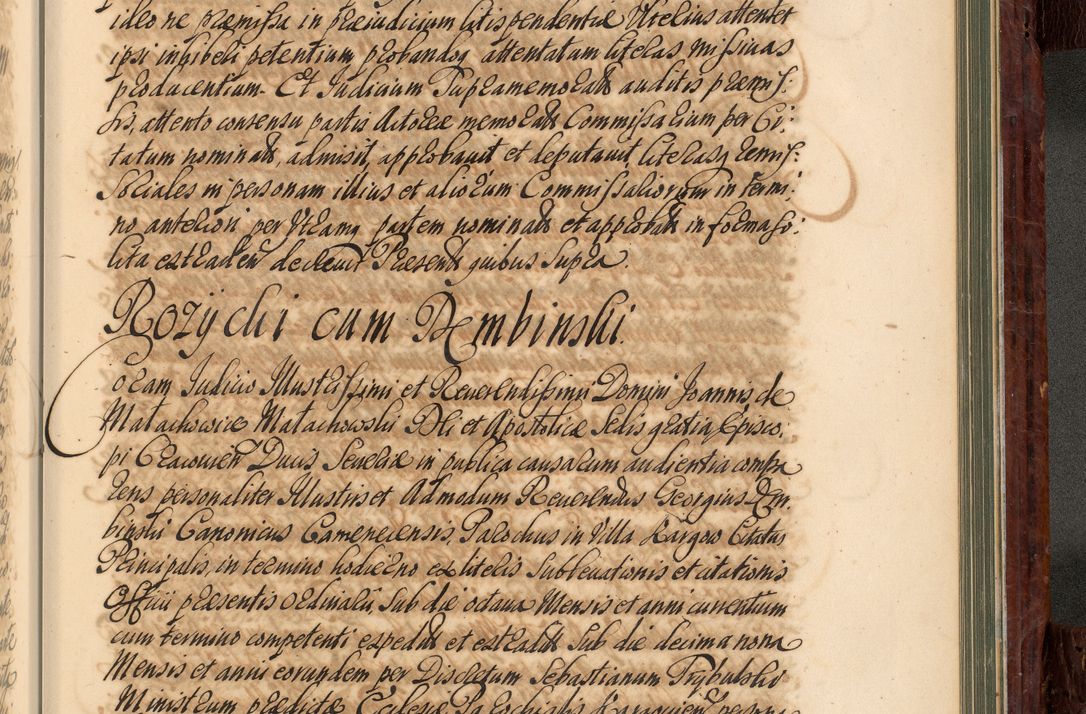 ideo ne præmissa in præiudicium litispendentiæ Ulterius attentet
ipsi inhiberi petentium probandoq attentatum literas missivas
producentium. Et Judicium Supramemoratt auditis præmis:
sis, attento consensu partis Actoreæ memoratt Commissarium per Ci:
tatum nominatt, admisit, approbavit et deputavit literasq remis:
soriales in personam illius et aliorum Commissariorum in termi:
no anteriori per Utramq partem nominatt et approbatt in forma so:
lita extraden decrevit Præsentt quibus supra.
Rozycki cum Dembinski.
Coram Judicio Illustrissimi et Reverendissimi Domini Joannis de
Małachowice Małachowski Dei et Apostolicæ Sedis gratia Episco:
pi Cracovien Ducis Severiæ in publica causarum audientia compa
rens personaliter Illustris et Admodum Reverendus Georgius Dem:
binski Canonicus Camenecensis, Parochus in Villa Kargow Citatus
Principalis, in termino hodierno ex literis sublevationis et citationis
Officii præsentis ordinarii, sub die octava Mensis et anni currentium
cum termino competenti expeditt et extraditt sub die decima nona
Mensis et anni eorundem per Discretum Sebastianum Trybulski
Ministrum prædictæ Ecclesiæ Parochialis Kargovien persona